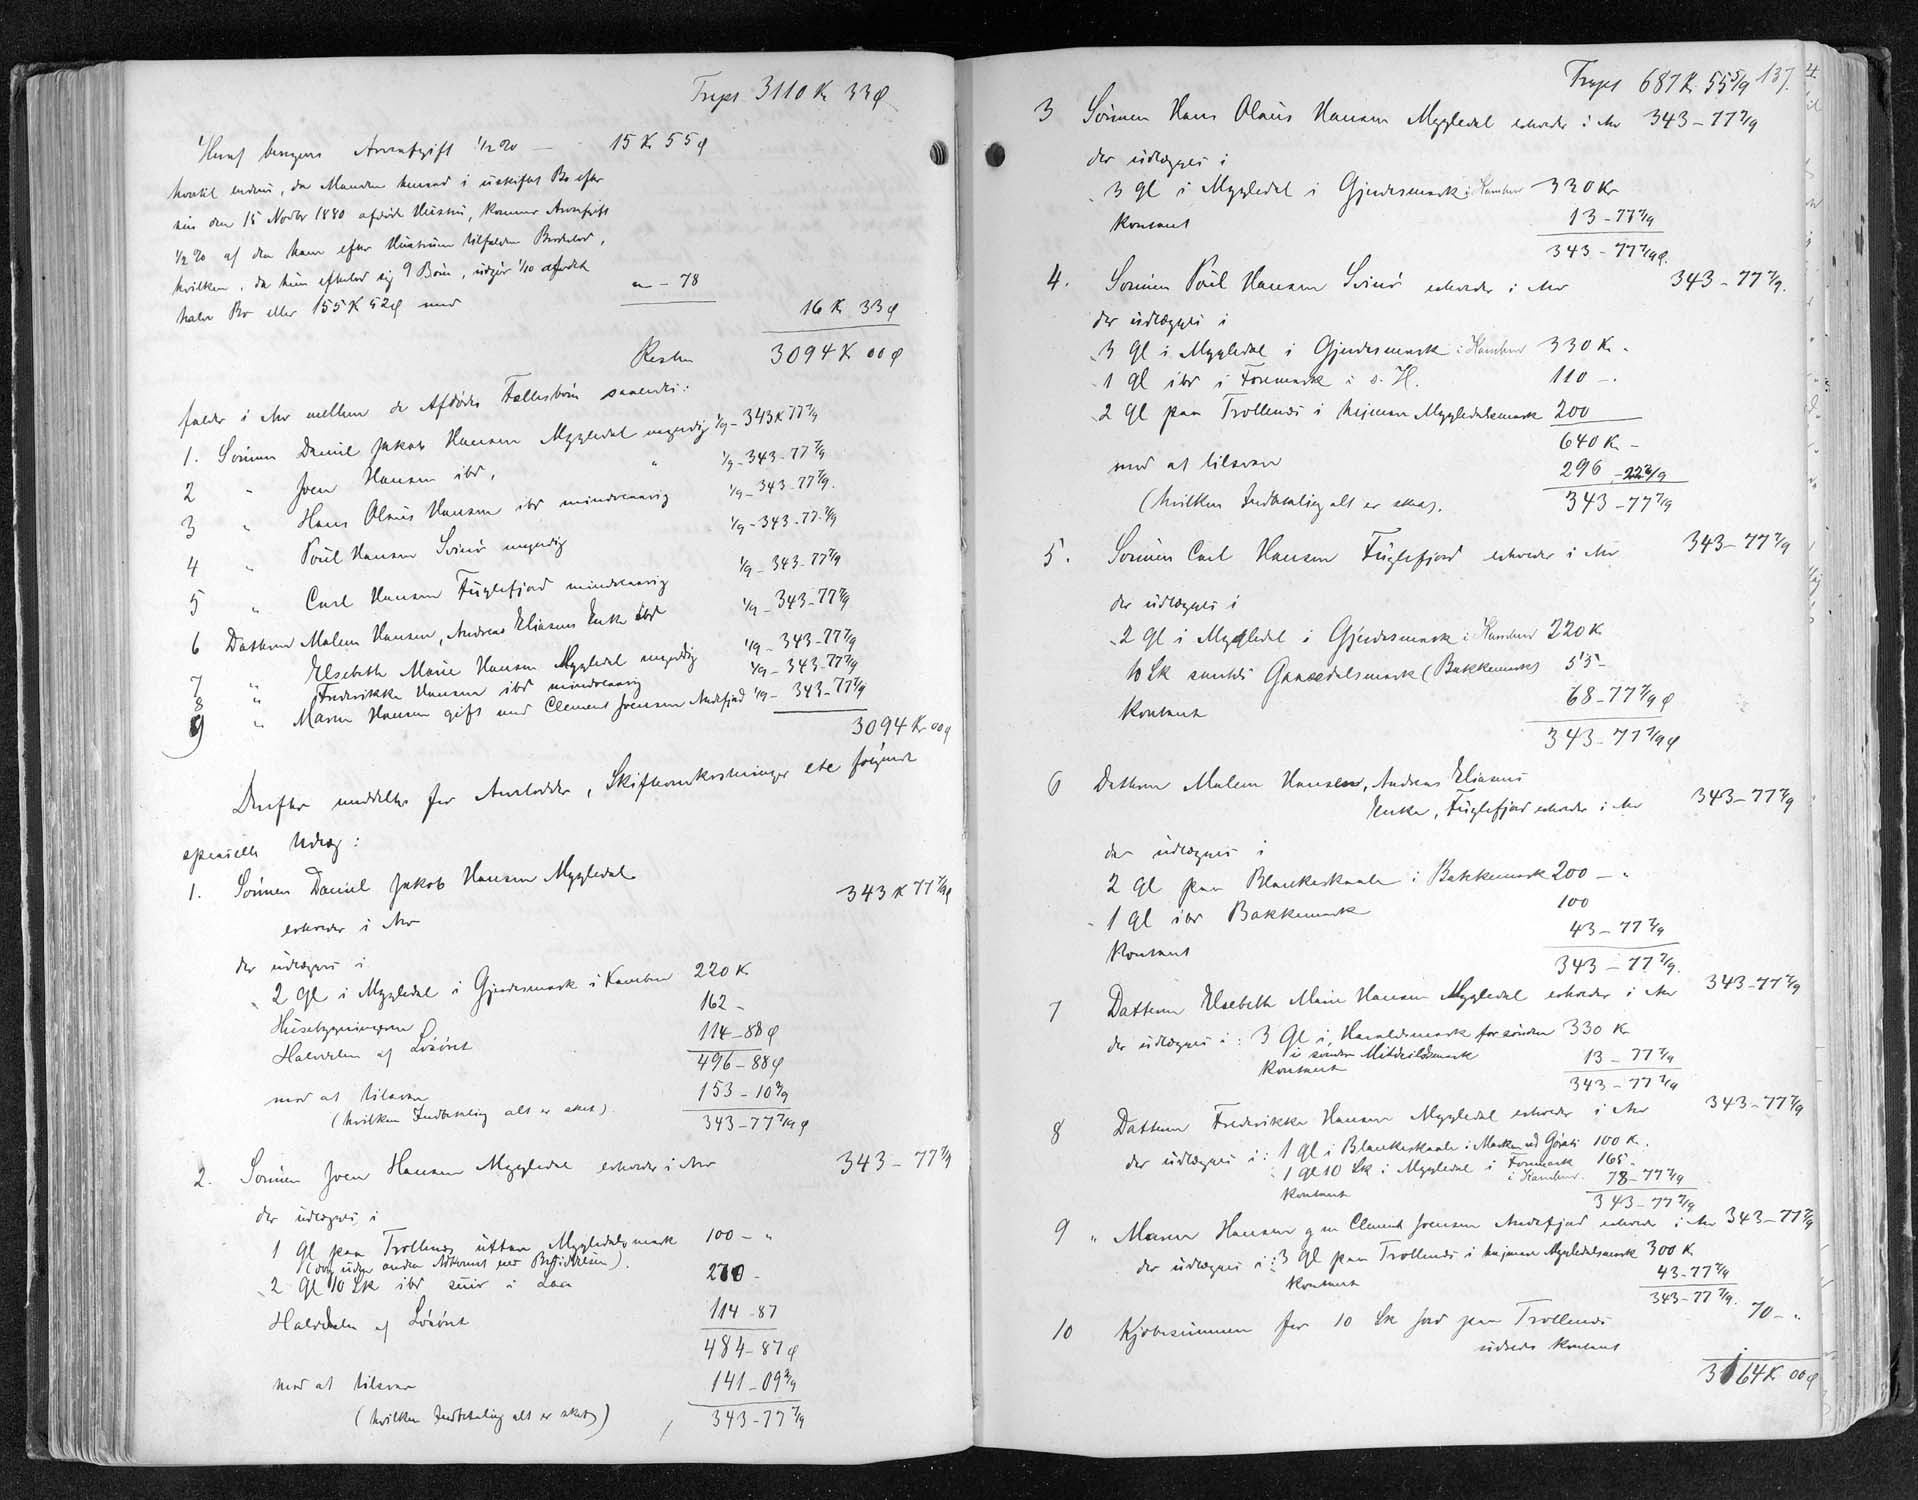 Trspt 3110 Kr 33 Ø
Heraf beregnes Arveafgift ½ % — 15 Kr 55 Ø
hvortil endnu, da Manden hensad i uskiftet Bo efter
sin den 15 Novbr 1880 afdøde Hustru, kommer Arveafgift
½ % af den ham efter Hustruen tilfaldne Broderlod,
hvilken, da hun efterlod sig 9 Børn, udgør 1/10 af det
halve Bo eller 155 K 52 Ø med " - 78
16 Kr 33 Ø
Resten 3094 K 00 Ø
falder i Arv mellem de Afdødes Fællesbørn saaledes:
1. Sønnen Daniel Jakob Hansen Mygledal myndig 1/9 - 343 K 77 7/9
2 " Joen Hansen ibd, " 1/9 - 343 - 77 7/9
3 " Hans Olaus Hansen ibd mindreaarig 1/9 - 343 - 77 7/9.
4 " Poul Hansen Svinø myndig 1/9 - 343 - 77 7/9
5 " Carl Hansen Fuglefjord mindreaarig 1/9 - 343 - 77 7/9
6 Datteren Malene Hansen, Andreas Eliasens Enke ibd 1/9 - 343 - 77 7/9
7 " Elsebeth Marie Hansen Mygledal myndig 1/9 - 343 - 77 7/9
8 " Frederikke Hansen ibd mindreaarig 1/9 - 343 - 77 7/9
9 " Maren Hansen gift med Clement Joensen Andefjord 1/9 - 343 - 77 7/9
3094 Kr 00 Ø
Derefter meddeltes for Arvelodder, Skifteomkostninger etc følgende
specielle Udlæg:
1. Sønnen Daniel Jakob Hansen Mygledal
erholder i Arv 343 K 77 7/9 Ø
der udlægges i
2 Gl i Mygledal i Gjerdesmark i Kambur 220 K
Husebygningerne 162 -
Halvdelen af Løsøret 114 - 88 Ø
496 - 88 Ø
mod at tilsvare 153 - 10 2/9
(hvilken Indbetaling alt er sket). 343 - 77 7/9 Ø
2. Sønnen Joen Hansen Mygledal erholder i Arv 343 - 77 7/9
der udlægges i
1 Gl paa Trollenæs i Mygledalsmark 100 - "
2 Gl 10 Sk ibd 270 -
Halvdelen af Løsøret 114 - 87
484 - 87 Ø
mod at tilsvare 141 - 09 2/9
(hvilken Indbetaling alt er sket) 343 - 77 7/9
Trspt 687 K. 55 5/9 137.
3 Sønnen Hans Olaus Hansen Mygledal erholder i Arv 343 - 77 7/9
der udlægges i
3 Gl i Mygledal i Gjerdesmark i Kambur 330 Kr
Kontant 13 - 77 7/9
343 - 77 7/9 Ø.
4. Sønnen Poul Hansen Svinø erholder i Arv 343 - 77 7/9.
der udlægges i
3 Gl i Mygledal i Gjerdesmark i Kambur 330 K -
1 Gl ibd i Foremark i s. H. 110 -.
2 Gl paa Trollenæs i Mygledalsmark 200
640 K -
mod at tilsvare 296 - 22 2/9
(hvilken Indbetaling alt er sket). 343 - 77 7/9
5. Sønnen Carl Hansen Fuglefjord erholder i Arv 343 - 77 7/9
der udlægges i
2 Gl i Mygledal i Gjerdesmark i Kambur 220 K
10 Sk samtds (Bakkemark) 55 -
Kontant 68 - 77 7/9 Ø
343 - 77 7/9 Ø
6 Datteren Malene Hansen, Andreas Eliasens
Enke, Fuglefjord erholder i Arv 343 - 77 7/9
der udlægges i
2 Gl paa Blankeskaale i Bakkemark 200 - "
1 Gl ibd Bakkemark 100
Kontant 43 - 77 7/9
343 - 77 7/9.
7 Datteren Elsebeth Marie Hansen Mygledal erholder i Arv 343 - 77 7/9
der udlægges i: 3 Gl i Haraldsmark for sønden 330 Kr
i søndre
Kontant 13 - 77 7/9
343 - 77 7/9
8 Datteren Frederikke Hansen Mygledal erholder i Arv 343 - 77 7/9
der udlægges i: 1 Gl i Blankeskaale i Marken 100 K.
1 Gl 10 Sk i Mygledal i Foremark 165 -
i Kambur. 78 - 77 7/9
Kontant 343 - 77 7/9
9 " Maren Hansen g m Clement Joensen Andefjord erholder i Arv 343 - 77 7/9
der udlægges i: 3 Gl paa Trollenæs i Mygledalsmark 300 K
Kontant 43 - 77 7/9
343 - 77 7/9.
10 Kjøbesummen for 10 Sk Jord paa Trollenæs 70 - "
udredes kontant
3164 K 00 Ø